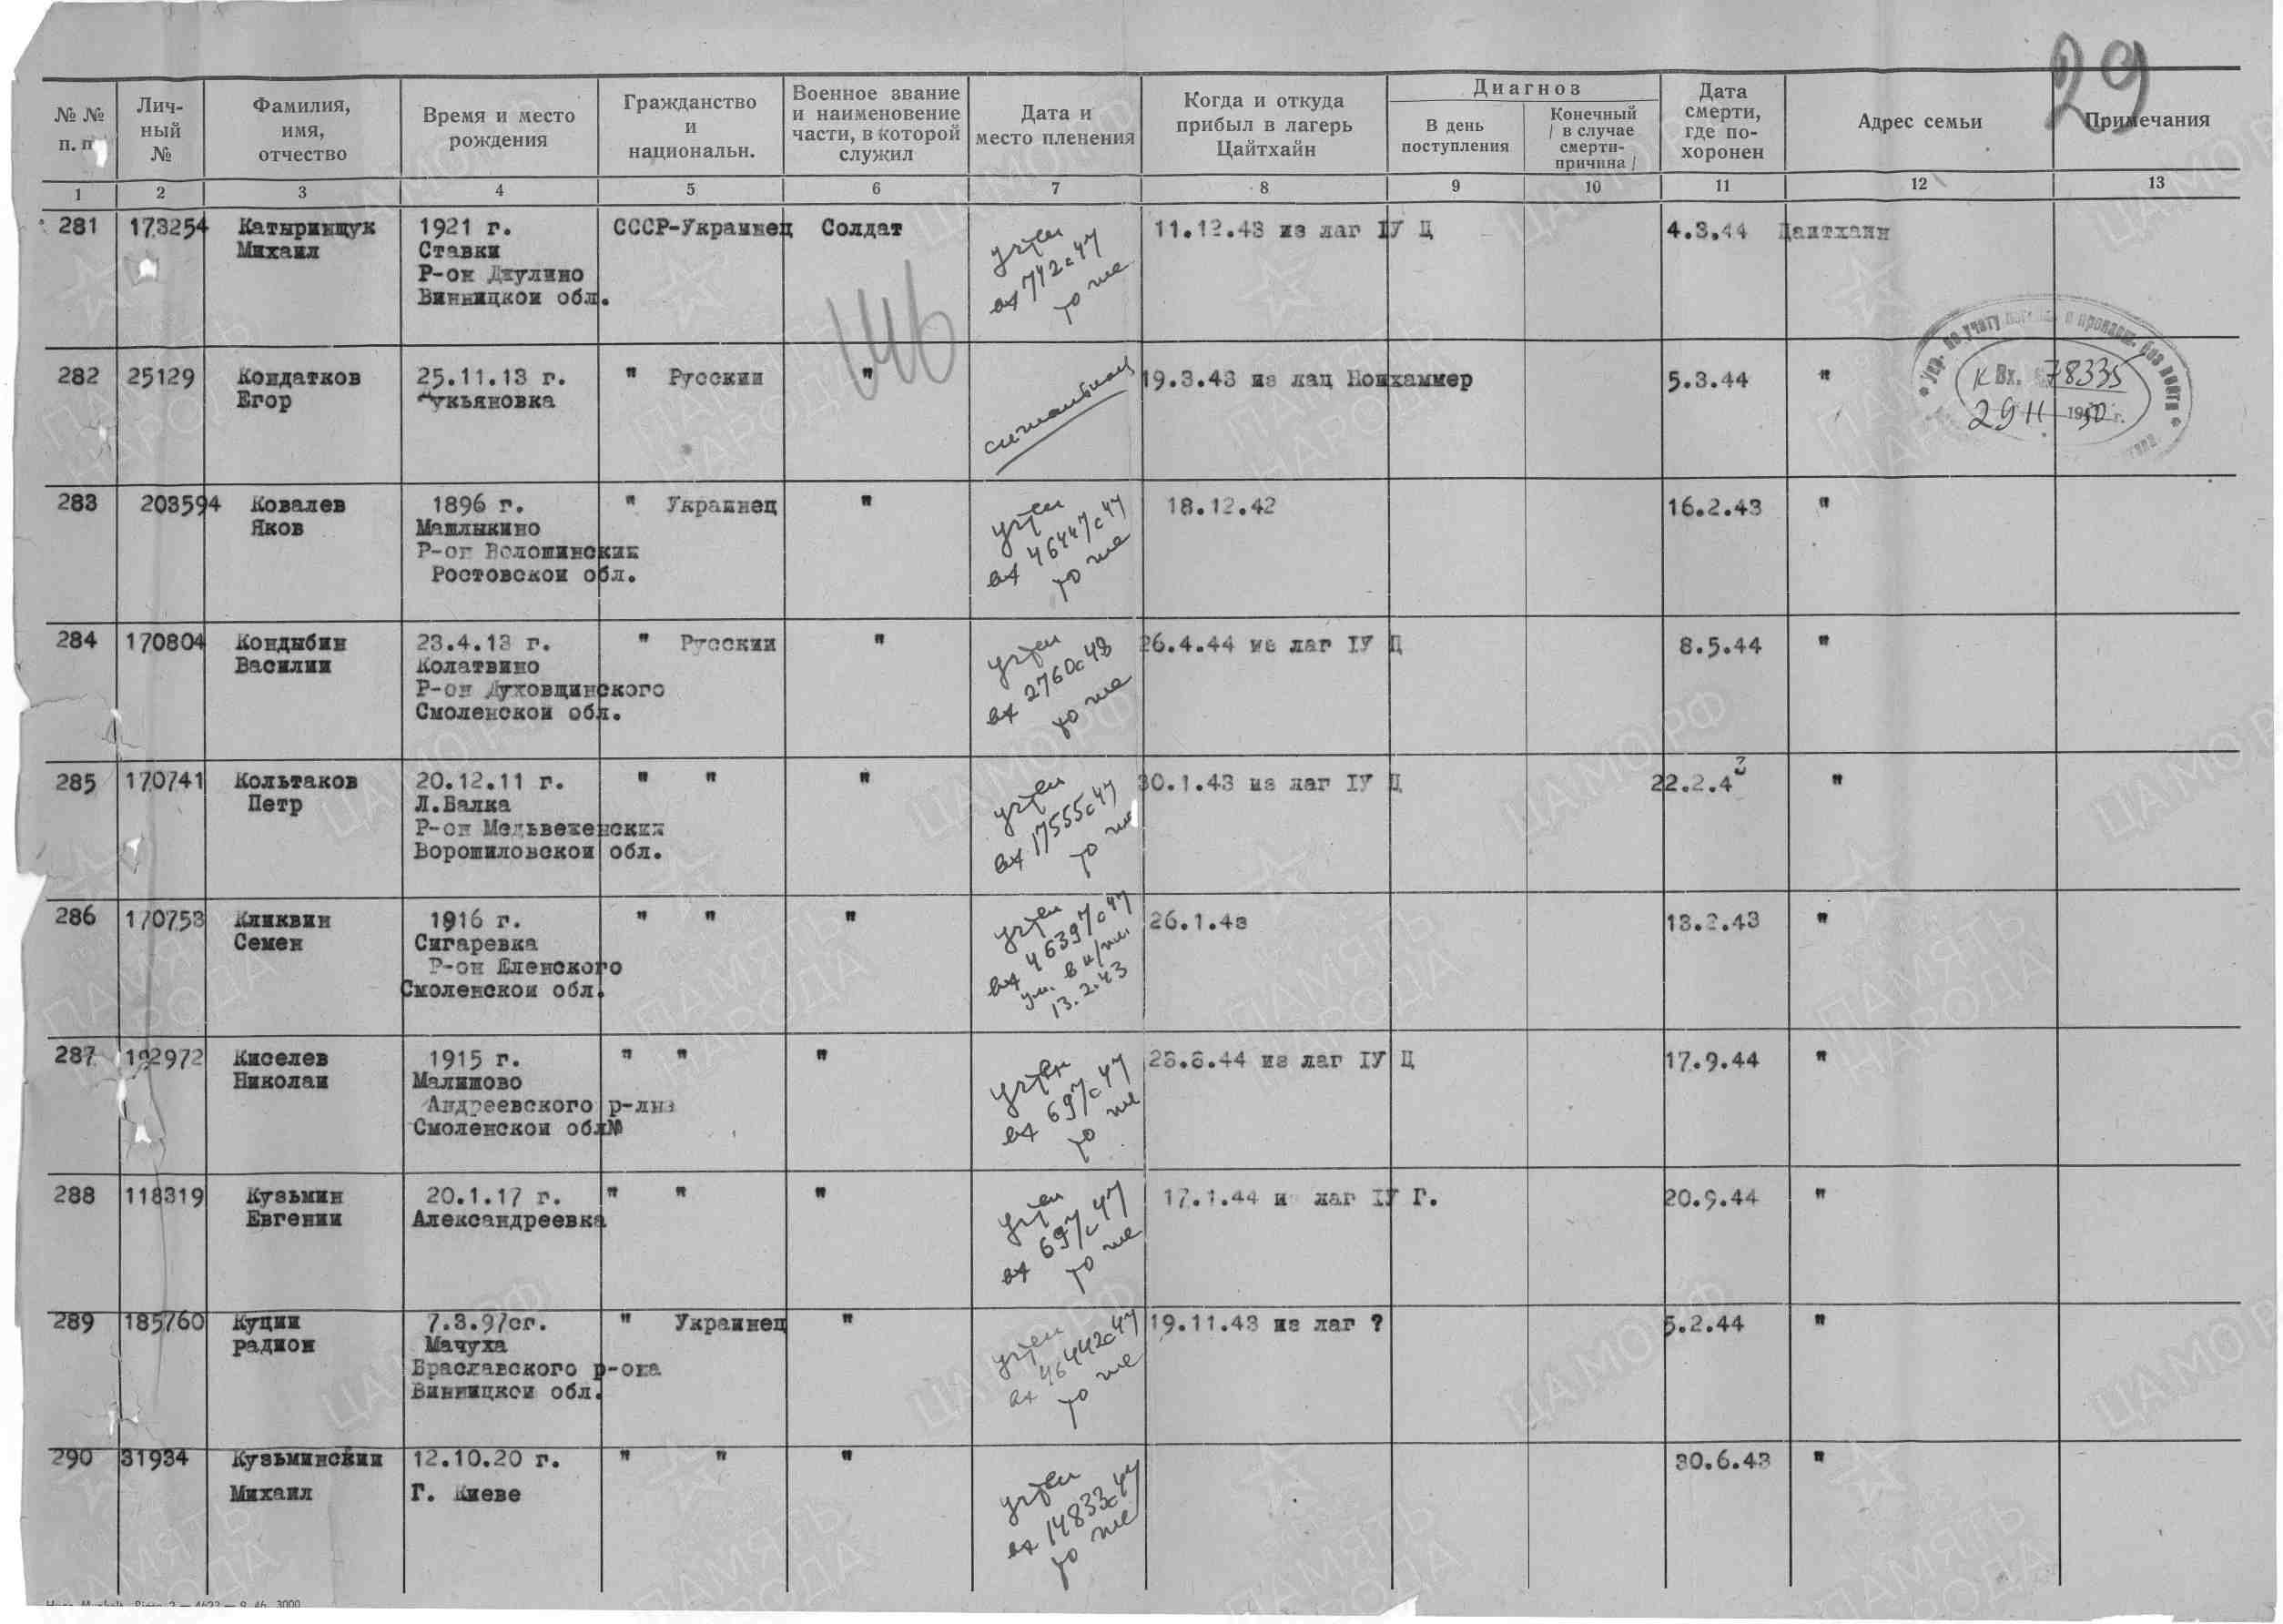 29
№ № п. п
Лич-ный №
Фамилия, имя, отчество
Время и место рождения
Гражданство и национальн.
Военное звание и наименование части, в которой служил
Дата и место пленения
Когда и откуда прибыл в лагерь Цайтхайн
Диагноз
В день поступления
Конечный / в случае смерти-причина /
Дата смерти, где по-хоронен
Адрес семьи
Примечания
1 2 3 4 5 6 7 8 9 10 11 12 13
281 173254 Катыринщук 1921 г. СССР-Украинец Солдат учтен 11.12.43 из лаг IУ Ц 4.3.44 Цаитхаин
Михаил Ставки вх 742с47
Р-он Джулино то же
Винницкои обл.
146
282 25129 Кондатков 25.11.13 г. " Русскии " 19.3.43 из лац Ноихаммер 5.3.44 "
Егор укьяновка
Упр. по учету погибш. и пропавш. без вести
К Вх. 78335
29 II 1950 г.
283 203594 Ковалев 1896 г. " Украинец " учтен 18.12.42 16.2.43 "
Яков Машлыкино вх 46447с47
Р-он Волошинскик то же
Ростовскои обл.
284 170804 Кондыбин 23.4.13 г. " Русскии " учтен 26.4.44 ис лаг IУ Ц 8.5.44 "
Василии Колатвино вх 2760с48
Р-он Духовщинского то же
Смоленскои обл.
285 170741 Кольтаков 20.12.11 г. " " " учтен 30.1.43 из лаг IУ Ц 22.2.43 "
Петр Л.Балка вх 17555с47
Р-он Медьвеженския то же
Ворошиловскои обл.
286 170753 Кликвин 1916 г. " " " учтен 26.1.43 13.2.43 "
Семен Сигаревка вх 46397с47
Р-он Еленского ум. в н/пл.
Смоленскои обл. 13.2.43
287 192972 Киселев 1915 г. " " " учтен 28.8.44 из лаг IУ Ц 17.9.44 "
Николаи Малишово вх 697с47
Андреевского р-лна то же
Смоленскои обл№
288 118319 Кузьмин 20.1.17 г. " " " учтен 17.1.44 и лаг IУ Г. 20.9.44 "
Евгении Александреевка вх 697с47
то же
289 185760 Куции 7.3.97сг. " Украинец " учтен 19.11.43 из лаг ? 5.2.44 "
радион Мачуха вх 46442с47
Браславского р-она то же
Винницкси обл.
290 31934 Кузьминскии 12.10.20 г. " " " учтен 30.6.43 "
Михаил Г. Киеве вх 14833с47
то же
4623 — 9. 46. 3000
ЦАМО.РФ
ПАМЯТЬ НАРОДА